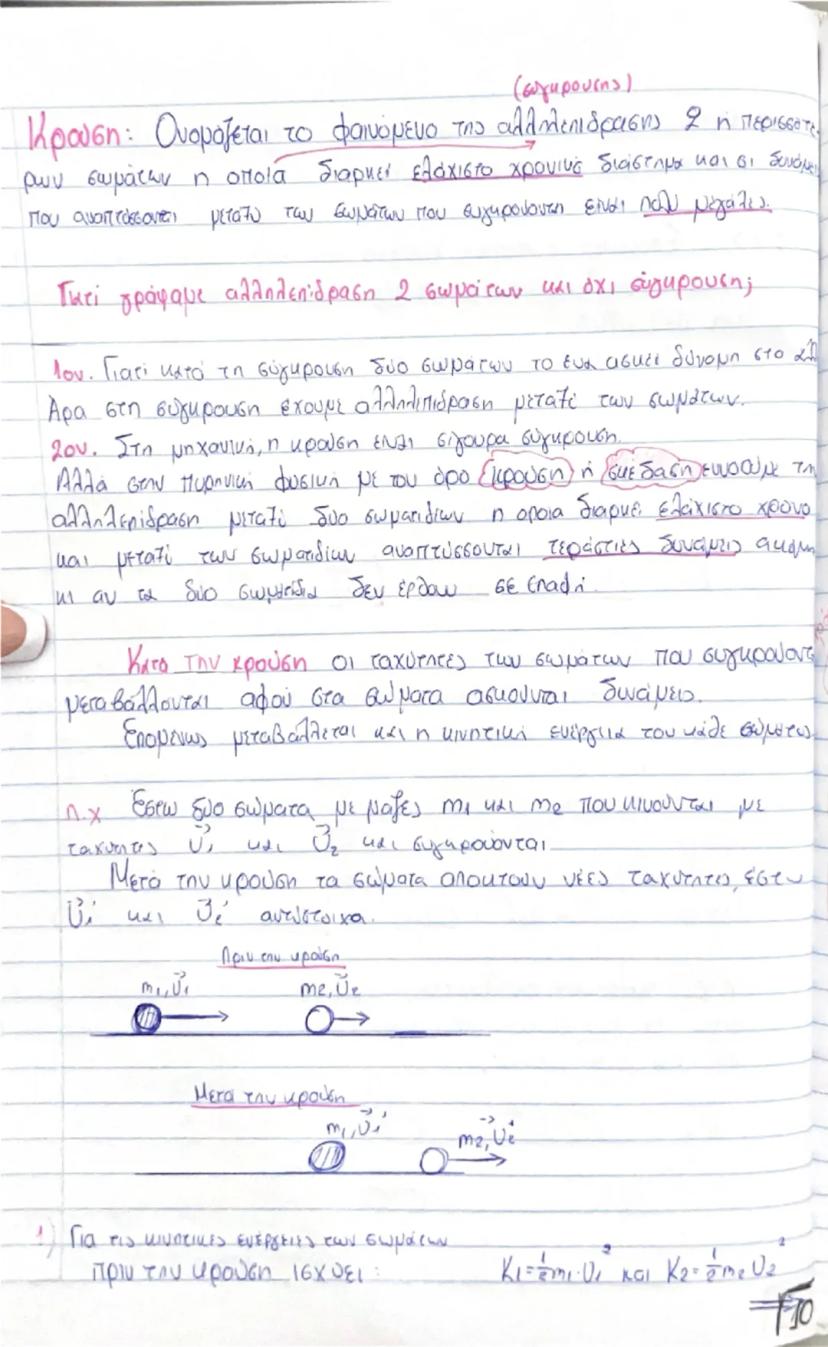 (σύγκρουσης)
Κρούση: Ονομάζεται το φαινόμενο της αλληλεπίδρασης 2 ή περισσοτέ-
ρων σωμάτων η οποία διαρκεί ελάχιστο χρονικό διάστημα και οι δυνάμεις
που αναπτύσσονται μεταξύ των σωμάτων που συγκρούονται είναι πολύ μεγάλες.
Γιατί γράψαμε αλληλεπίδραση 2 σωμάτων και όχι σύγκρουση;
1ον. Γιατί κατά τη σύγκρουση δύο σωμάτων το ένα ασκεί δύναμη στο άλλο
Άρα στη σύγκρουση έχουμε αλληλεπίδραση μεταξύ των σωμάτων.
2ον. Στη μηχανική, η κρούση είναι σίγουρα σύγκρουση.
Αλλά στην πυρηνική φυσική με τον όρο κρούση ή σκέδαση εννοούμε τη
αλληλεπίδραση μεταξύ δύο σωματιδίων η οποία διαρκεί ελάχιστο χρόνο
και μεταξύ των σωματιδίων αναπτύσσονται τεράστιες δυνάμεις ακόμη
κι αν τα δύο σωματίδια δεν έρθουν σε επαφή.
Κατά την κρούση οι ταχύτητες των σωμάτων που συγκρούοντ
μεταβάλλονται αφού στα σώματα ασκούνται δυνάμεις.
Επομένως μεταβάλλεται και η κινητική ενέργεια του κάθε σώματος
π.χ Έστω δύο σώματα με μάζες m₁ και m₂ που κινούνται με
ταχύτητες υ⃗₁ και υ⃗₂ και συγκρούονται
Μετά την κρούση τα σώματα αποκτούν νέες ταχύτητες, έστω
υ⃗₁' και υ⃗₂' αντίστοιχα.
Πριν την κρούση
m₁, υ⃗₁ m₂, υ⃗₂
Μετά την κρούση
m₁, υ⃗₁' m₂, υ⃗₂'
1) Για τις κινητικές ενέργειες των σωμάτων
πριν την κρούση ισχύει: K₁=½m₁·υ₁² και K₂=½m₂υ₂²